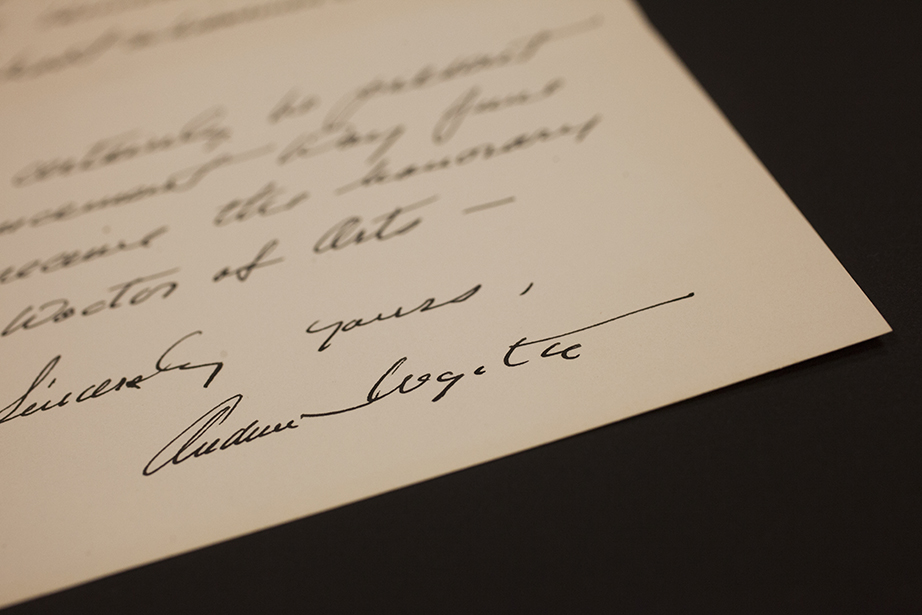 certainly be present
ncement Day June
receive the honorary
Doctor of Arts —
Sincerely yours,
Andrew Wyeth